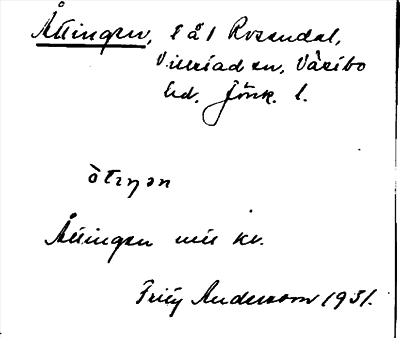 Åttingen, l å l Rosendal,
Villstad sn, Västbo
hd. Jönk. l.
òtıŋən
Åttingen mil kv.
Fritz Andersson 1931.